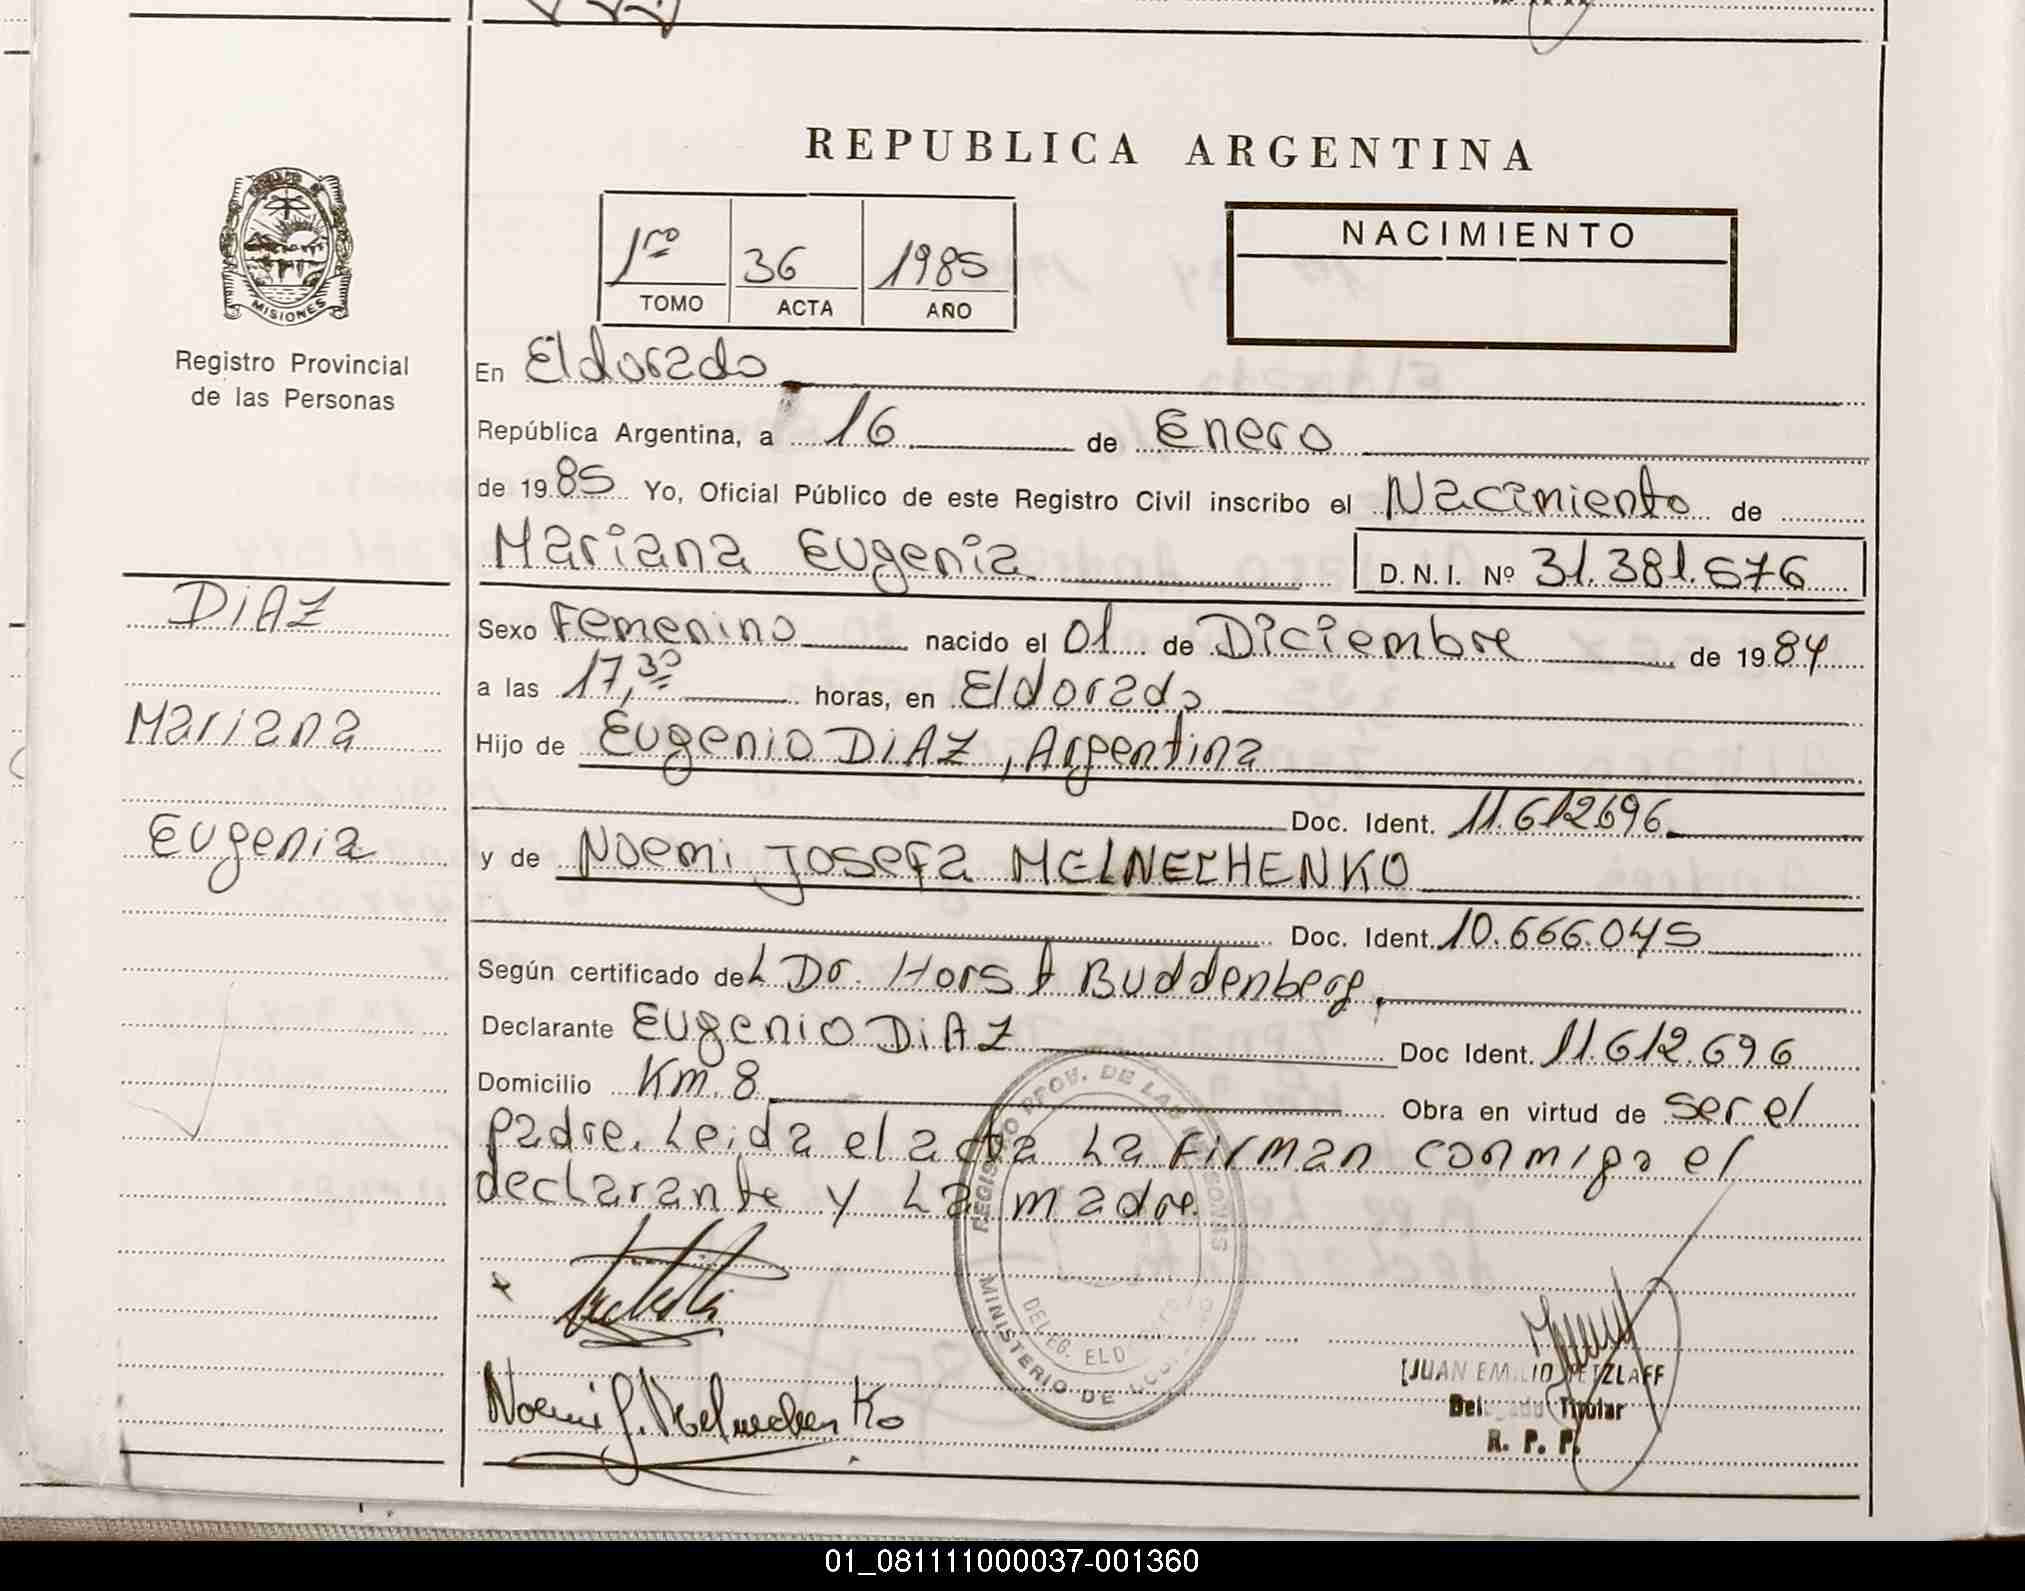 REPUBLICA ARGENTINA
1ro 36 1985
TOMO ACTA AÑO
NACIMIENTO
MISIONES
Registro Provincial
de las Personas
DIAZ
Mariana
Eugenia
En Eldorado
República Argentina, a 16 de Enero
de 1985 Yo, Oficial Público de este Registro Civil inscribo el Nacimiento de
Mariana Eugenia D.N.I. Nº 31.381.676
Sexo Femenino nacido el 01 de Diciembre de 1984
a las 17,30 horas, en Eldorado
Hijo de Eugenio DIAZ, Argentina
Doc. Ident. 11.612.696
y de Noemi Josefa MELNECHENKO
Doc. Ident. 10.666.045
Según certificado del Dr. Horst Buddenberg,
Declarante Eugenio DIAZ Doc Ident. 11.612.696
Domicilio Km. 8 Obra en virtud de ser el
padre. Leida el acta la firman conmigo el
declarante y la madre.
REGISTRO PROV. DE LAS PERSONAS
MINISTERIO DE
DELEG. ELDORADO
Noemi J. Melnechenko
JUAN EMILIO PETZLAFF
Delegado Titular
R. P. P.
01_081111000037-001360